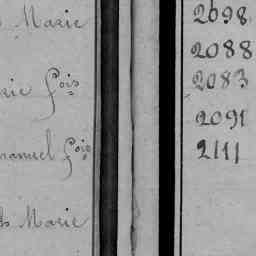 Marie 2098
2088
rie fois 2083
2091
manuel fois 2111
Marie